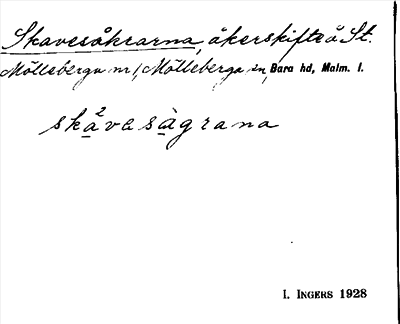 Skavesåkrarna, åkerskifte å St.
Mölleberga nr 1, Mölleberga sn, Bara hd, Malm. l.
skåvesàgrana
I. INGERS 1928